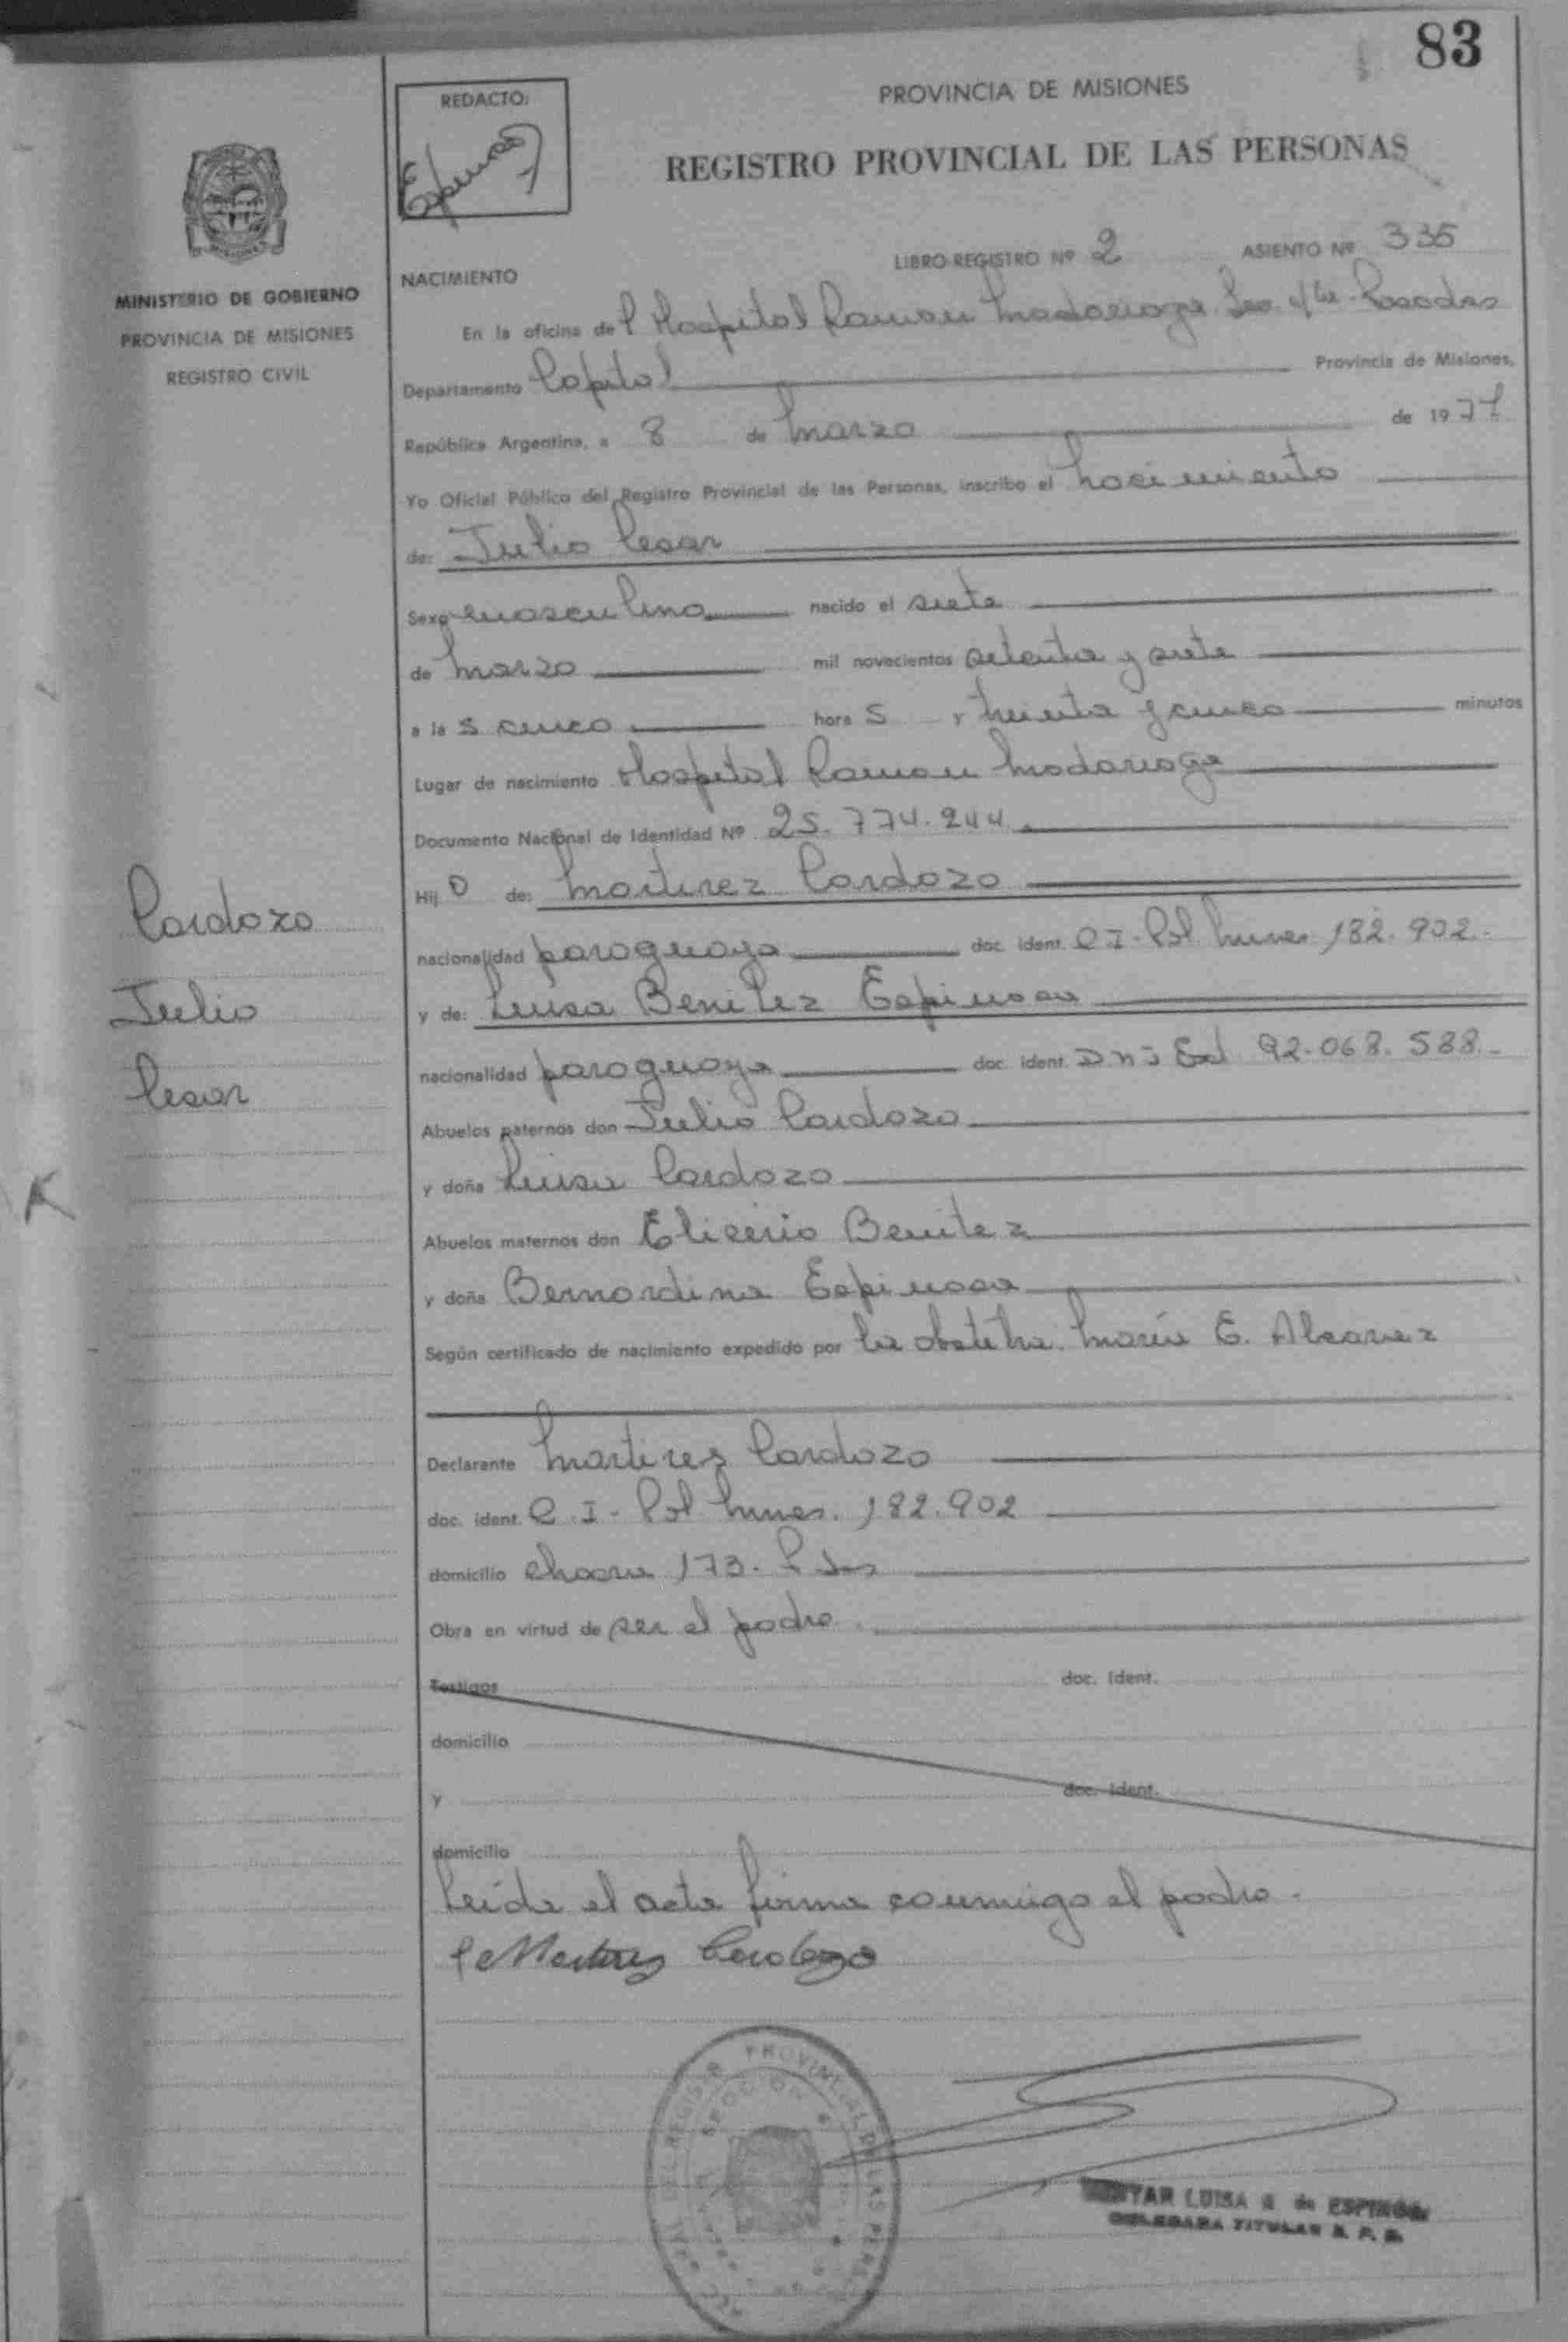 83
REDACTO:
PROVINCIA DE MISIONES
REGISTRO PROVINCIAL DE LAS PERSONAS
MINISTERIO DE GOBIERNO
PROVINCIA DE MISIONES
REGISTRO CIVIL
LIBRO-REGISTRO Nº 2 ASIENTO Nº 335
NACIMIENTO
En la oficina del Hospital Ramon Madariaga Posadas
Departamento Capital Provincia de Misiones,
República Argentina, a 8 de Marzo de 1977
Yo Oficial Público del Registro Provincial de las Personas, inscribo el nacimiento
de: Julio Cesar
Sexo masculino nacido el siete
de marzo mil novecientos setenta y siete
a las cinco horas y treinta y cinco minutos
Lugar de nacimiento Hospital Ramon Madariaga
Documento Nacional de Identidad Nº 25.774.244
Hijo de: Martirez Cardozo
nacionalidad paraguaya doc. ident. C.I. Pol. Mnes. 182.902.-
y de: Luisa Benitez Espinosa
nacionalidad paraguaya doc. ident. D.N.I. Ext 92.068.588.-
Abuelos paternos don Julio Cardozo
y doña Luisa Cardozo
Abuelos maternos don Elicerio Benitez
y doña Bernardina Espinosa
Según certificado de nacimiento expedido por la obstetra Maria E. Alcaraz
Declarante Martires Cardozo
doc. ident. C.I- Pol. Mnes. 182.902
domicilio chacra 173. Pdas
Obra en virtud de ser el padre.
Testigos doc. ident.
domicilio
y doc. ident.
domicilio
Leida el acta firma conmigo el padre.-
Martires Cardozo
Cardozo
Julio
Cesar
LUISA de ESPINOSA
DELEGADA TITULAR R. P. P.